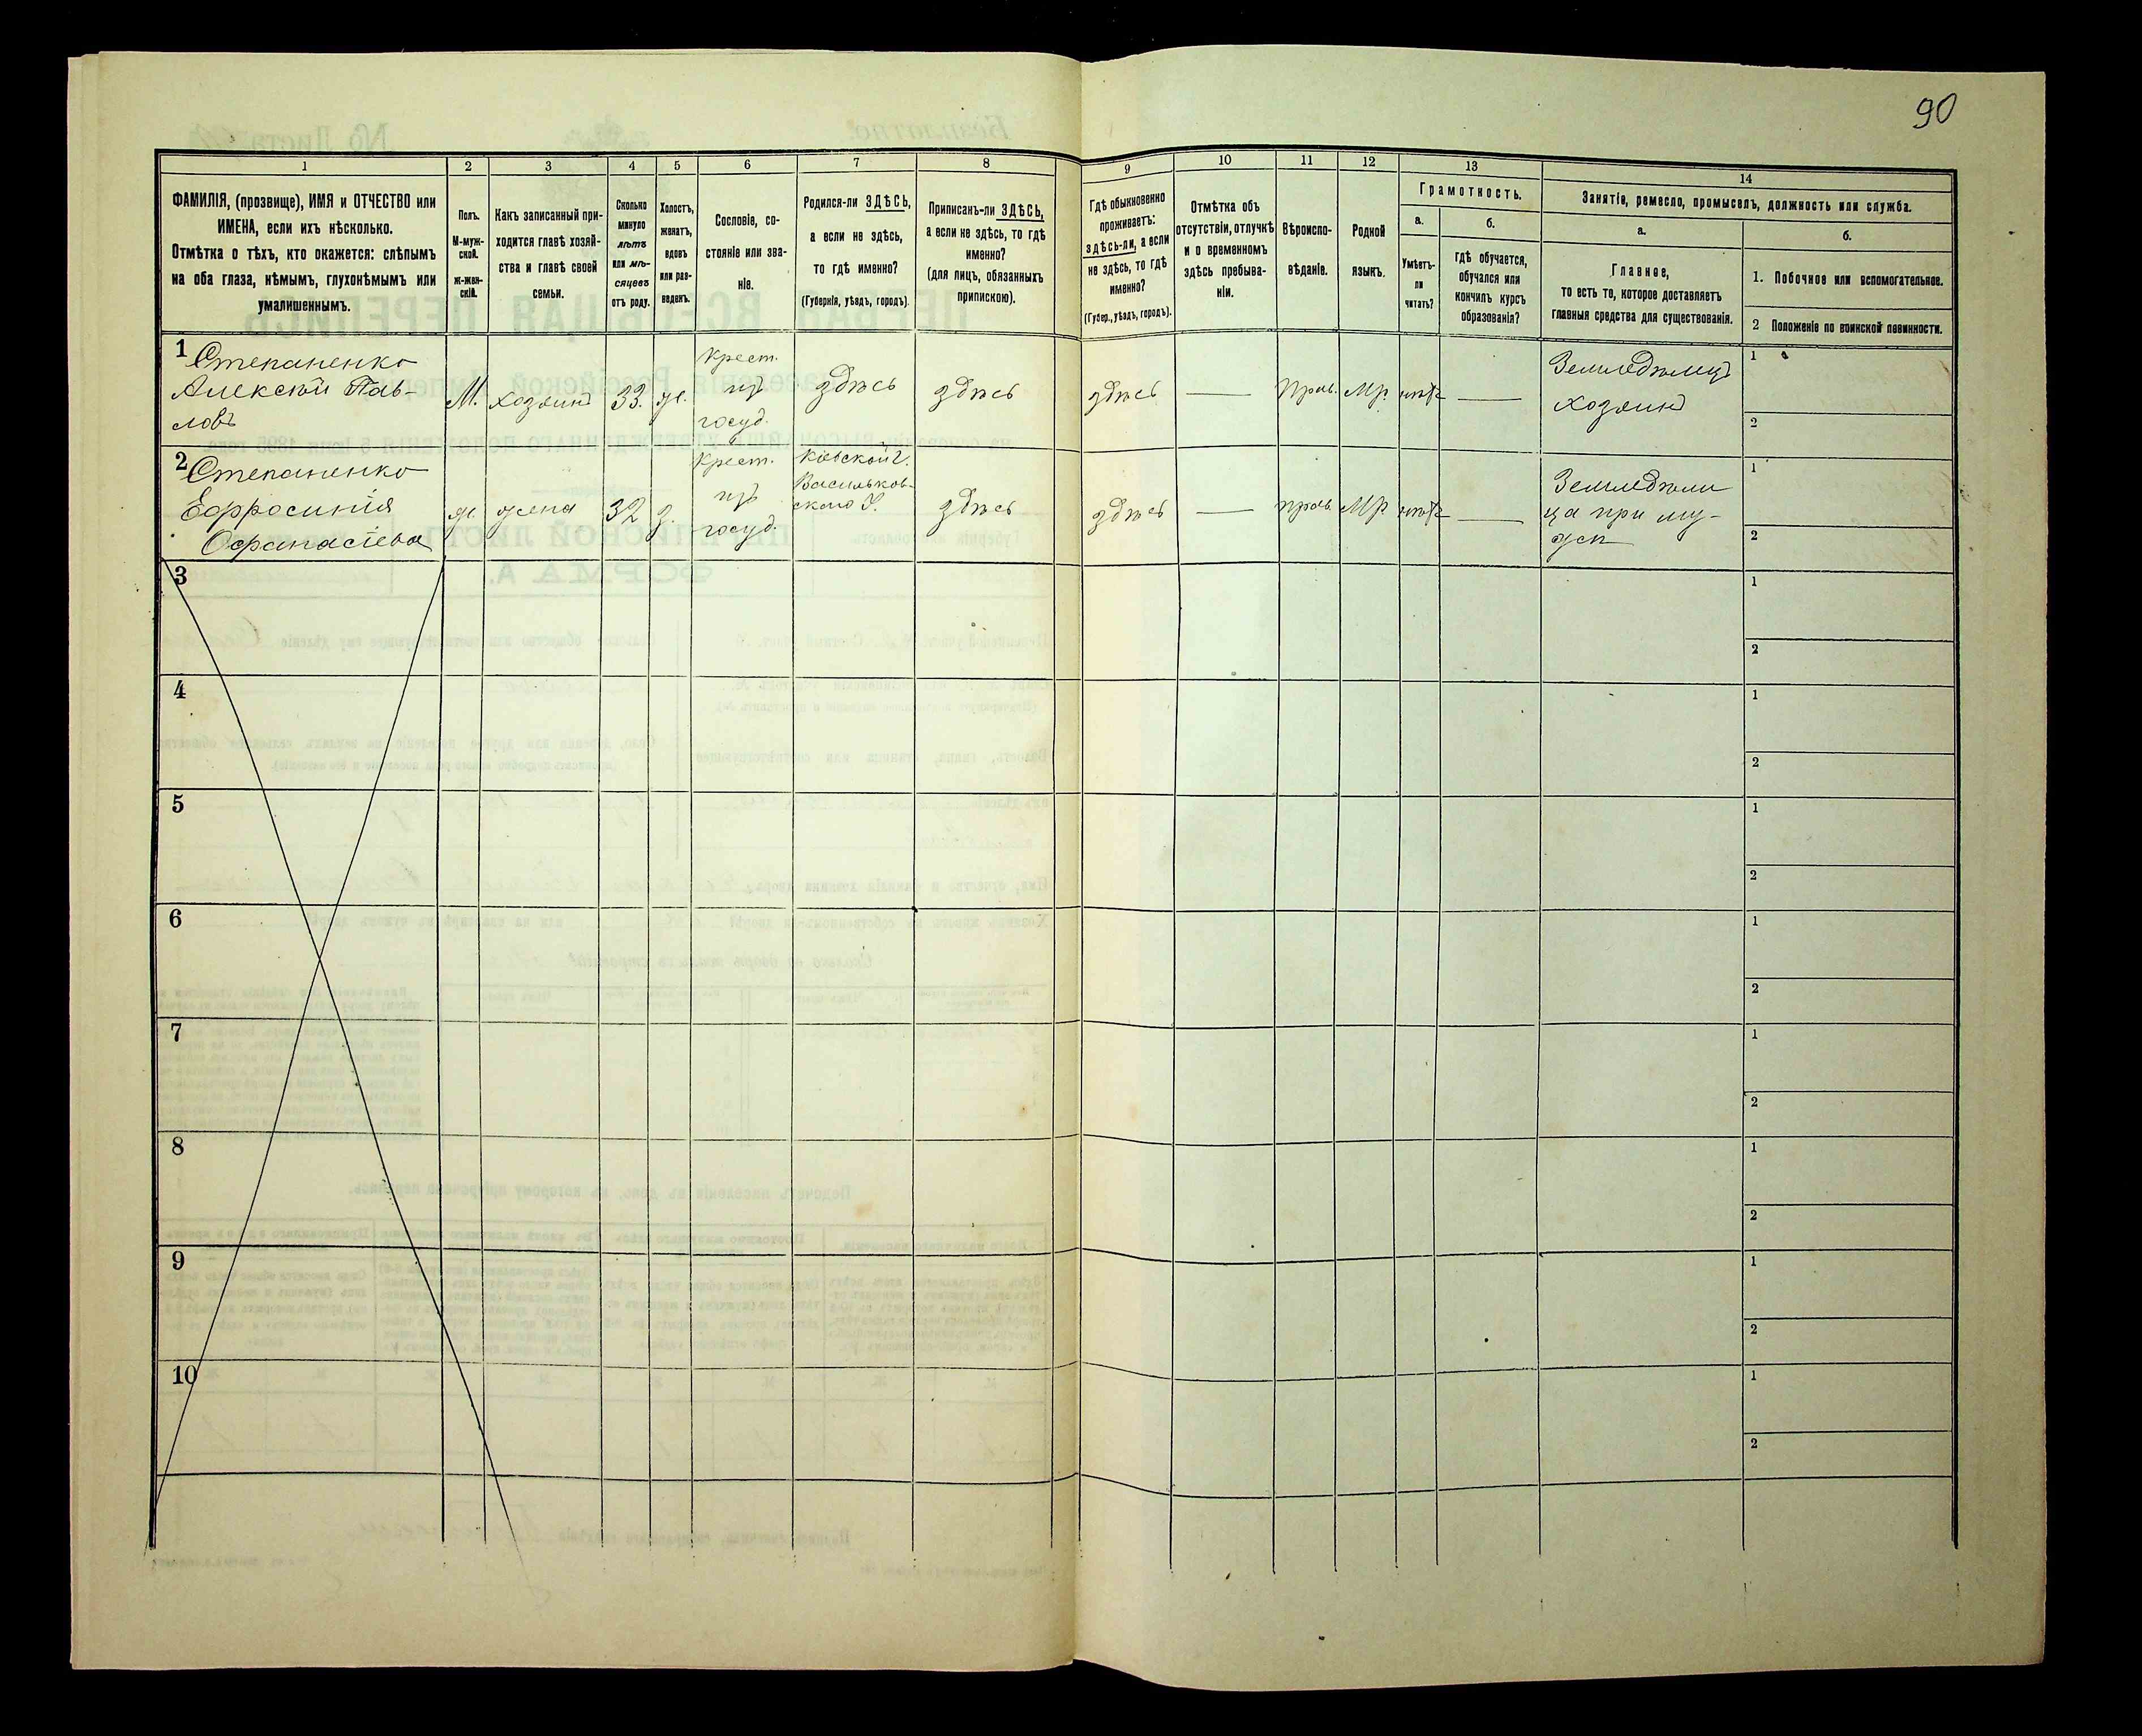 90
1 2 3 4 5 6 7 8 9 10 11 12 13 14
ФАМИЛІЯ, (прозвище), ИМЯ и ОТЧЕСТВО или
ИМЕНА, если ихъ нѣсколько.
Отмѣтка о тѣхъ, кто окажется: слѣпымъ
на оба глаза, нѣмымъ, глухонѣмымъ или
умалишеннымъ.
Полъ.
М-муж-
ской.
ж-жен-
скій.
Какъ записанный при-
ходится главѣ хозяй-
ства и главѣ своей
семьи.
Сколько
минуло
лѣтъ
или мѣ-
сяцевъ
отъ роду.
Холостъ,
женатъ,
вдовъ
или раз-
веденъ.
Сословіе, со-
стояніе или зва-
ніе.
Родился-ли ЗДѢСЬ,
а если не здѣсь,
то гдѣ именно?
(Губернія, уѣздъ, городъ).
Приписанъ-ли ЗДѢСЬ,
а если не здѣсь, то гдѣ
именно?
(для лицъ, обязанныхъ
припискою).
Гдѣ обыкновенно
проживаетъ:
здѣсь-ли, а если
не здѣсь, то гдѣ
именно?
(Губер., уѣздъ, городъ).
Отмѣтка объ
отсутствіи, отлучкѣ
и о временномъ
здѣсь пребыва-
ніи.
Вѣроиспо-
вѣданіе.
Родной
языкъ.
Грамотность.
а.
Умѣетъ-
ли
читать?
б.
гдѣ обучается,
обучался или
кончилъ курсъ
образованія?
Занятіе, ремесло, промыселъ, должность или служба.
а.
Главное,
то есть то, которое доставляетъ
главныя средства для существованія.
б.
1. Побочное или вспомогательное.
2 Положеніе по воинской повинности.
1 Степаненко
Алексѣй Пав-
ловъ
М.
хозяинъ
33.
ж.
Крест.
изъ
госуд.
здѣсь
здѣсь
здѣсь
—
Прав.
Мр.
нѣтъ
—
Земледѣлецъ
хозяинъ
1
2
2 Степаненко
Ефросинія
Афанасіева
ж
жена
32
з.
Крест.
изъ
госуд.
Кіевской г.
Васильков-
скаго У.
здѣсь
здѣсь
—
прав.
Мр
нѣтъ
—
Земледѣли
ца при му-
жѣ
1
2
3
1
2
4
1
2
5
1
2
6
1
2
7
1
2
8
1
2
9
1
2
10
1
2